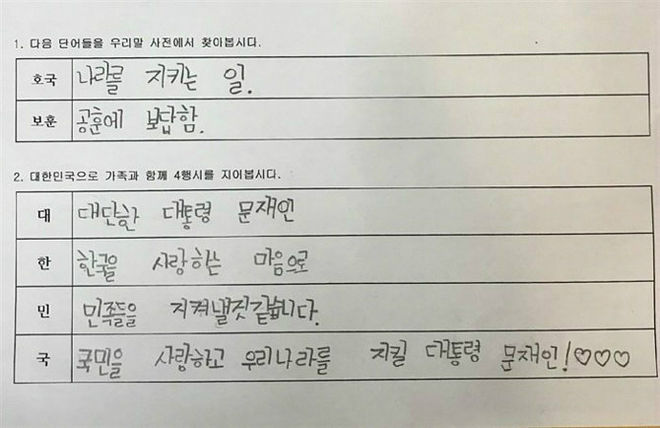 1. 다음 단어들을 우리말 사전에서 찾아봅시다.
호국 나라를 지키는 일.
보훈 공훈에 보답함.
2. 대한민국으로 가족과 함께 4행시를 지어봅시다.
대 대단한 대통령 문재인
한 한국을 사랑하는 마음으로
민 민족들을 지켜낼짓같습니다.
국 국민을 사랑하고 우리나라를 지킬 대통령 문재인!♡♡♡